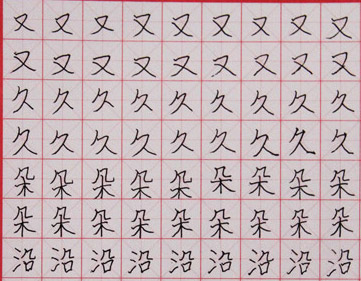 又又又又又又又又又
又又又又又又又又又
久久久久久久久久久
久久久久久久久久久
朵朵朵朵朵朵朵朵朵
朵朵朵朵朵朵朵朵朵
沿沿沿沿沿沿沿沿沿